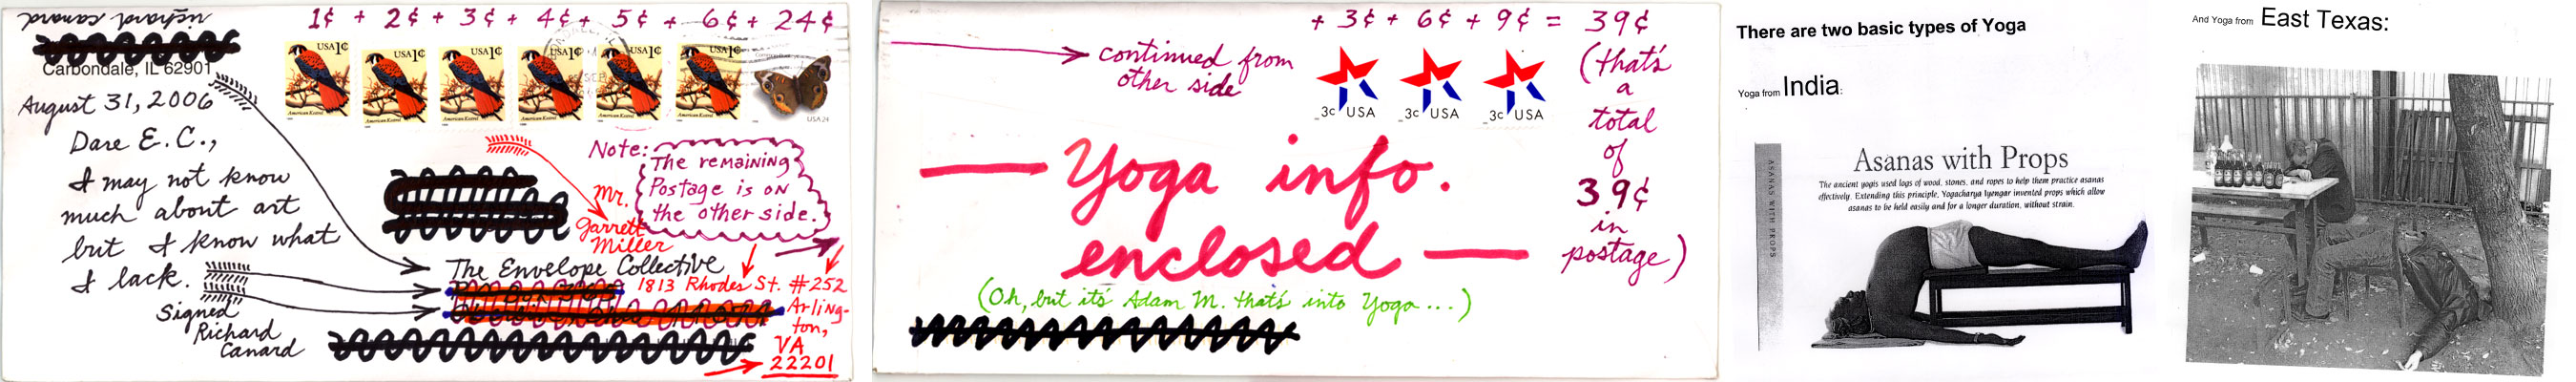 richard canard
Carbondale, IL 62901
August 31, 2006
Dare E.C.,
I may not know
much about art
but I know what
I lack.
Signed
Richard
Canard
1¢ + 2¢ + 3¢ + 4¢ + 5¢ + 6¢ + 24¢
USA 1¢
American Kestrel
USA 1¢
American Kestrel
USA 1¢
American Kestrel
USA 1¢
American Kestrel
USA 1¢
American Kestrel
USA 1¢
American Kestrel
USA 24
Note:
The remaining
Postage is on
the other side.
Mr.
Garrett
Miller
The Envelope Collective
1813 Rhodes St. #252
Arling-
ton,
VA
22201
+ 3¢ + 6¢ + 9¢ = 39¢
(that's
a
total
of
39¢
in
postage)
continued from
other side
3c USA
3c USA
3c USA
— Yoga info.
enclosed —
(Oh, but it's Adam M. that's into Yoga...)
There are two basic types of Yoga
Yoga from India:
ASANAS WITH PROPS
Asanas with Props
The ancient yogis used logs of wood, stones, and ropes to help them practice asanas
effectively. Extending this principle, Yogacharya Iyengar invented props which allow
asanas to be held easily and for a longer duration, without strain.
And Yoga from East Texas: